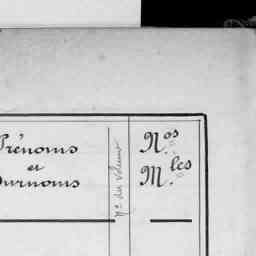 Prénoms
et
Surnoms
Nº du volume
Nos
Mles